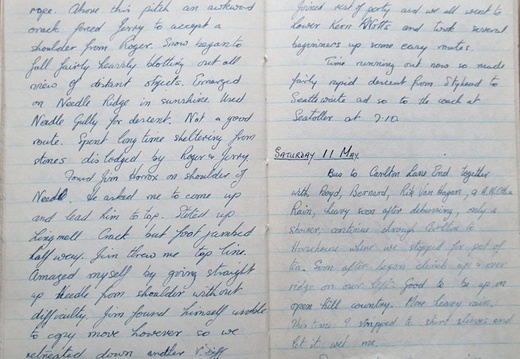 rope. Above this pitch an awkward
crack forced Jerry to accept a
shoulder from Roger. Snow began to
fall fairly heavily blotting out all
view of distant objects. Emerged
on Needle Ridge in sunshine. Used
Needle Gully for descent. Not a good
route. Spent long time sheltering from
stones dislodged by Roger & Jerry
Found Jim on shoulder of
Needle. He asked me to come up
and lead him to top. Started up
Lingmell Crack but foot jambed
half way. Jim threw me top line.
Amazed myself by going straight
up Needle from shoulder without
difficulty. Jim found himself unable
to copy move however so we
retreated down another V. Diff
joined rest of party and we all went to
Lower Kern Knotts and took several
beginners up some easy routes.
Time running out now so made
fairly rapid descent from Styhead to
Seathwaite ad so to the coach at
Seatoller at 7.10.
SATURDAY 11 MAY
Bus to Carlton Lane End together
with Boyd, Bernard, Rip Van
Rain, heavy soon after debussing, only a
shower, continue through to
where we stopped for pot of
tea. Soon after began climb up
ridge on our left. Good to be up in
open fell country. More heavy rain.
This time I stripped to short sleeves and
let it wet me.